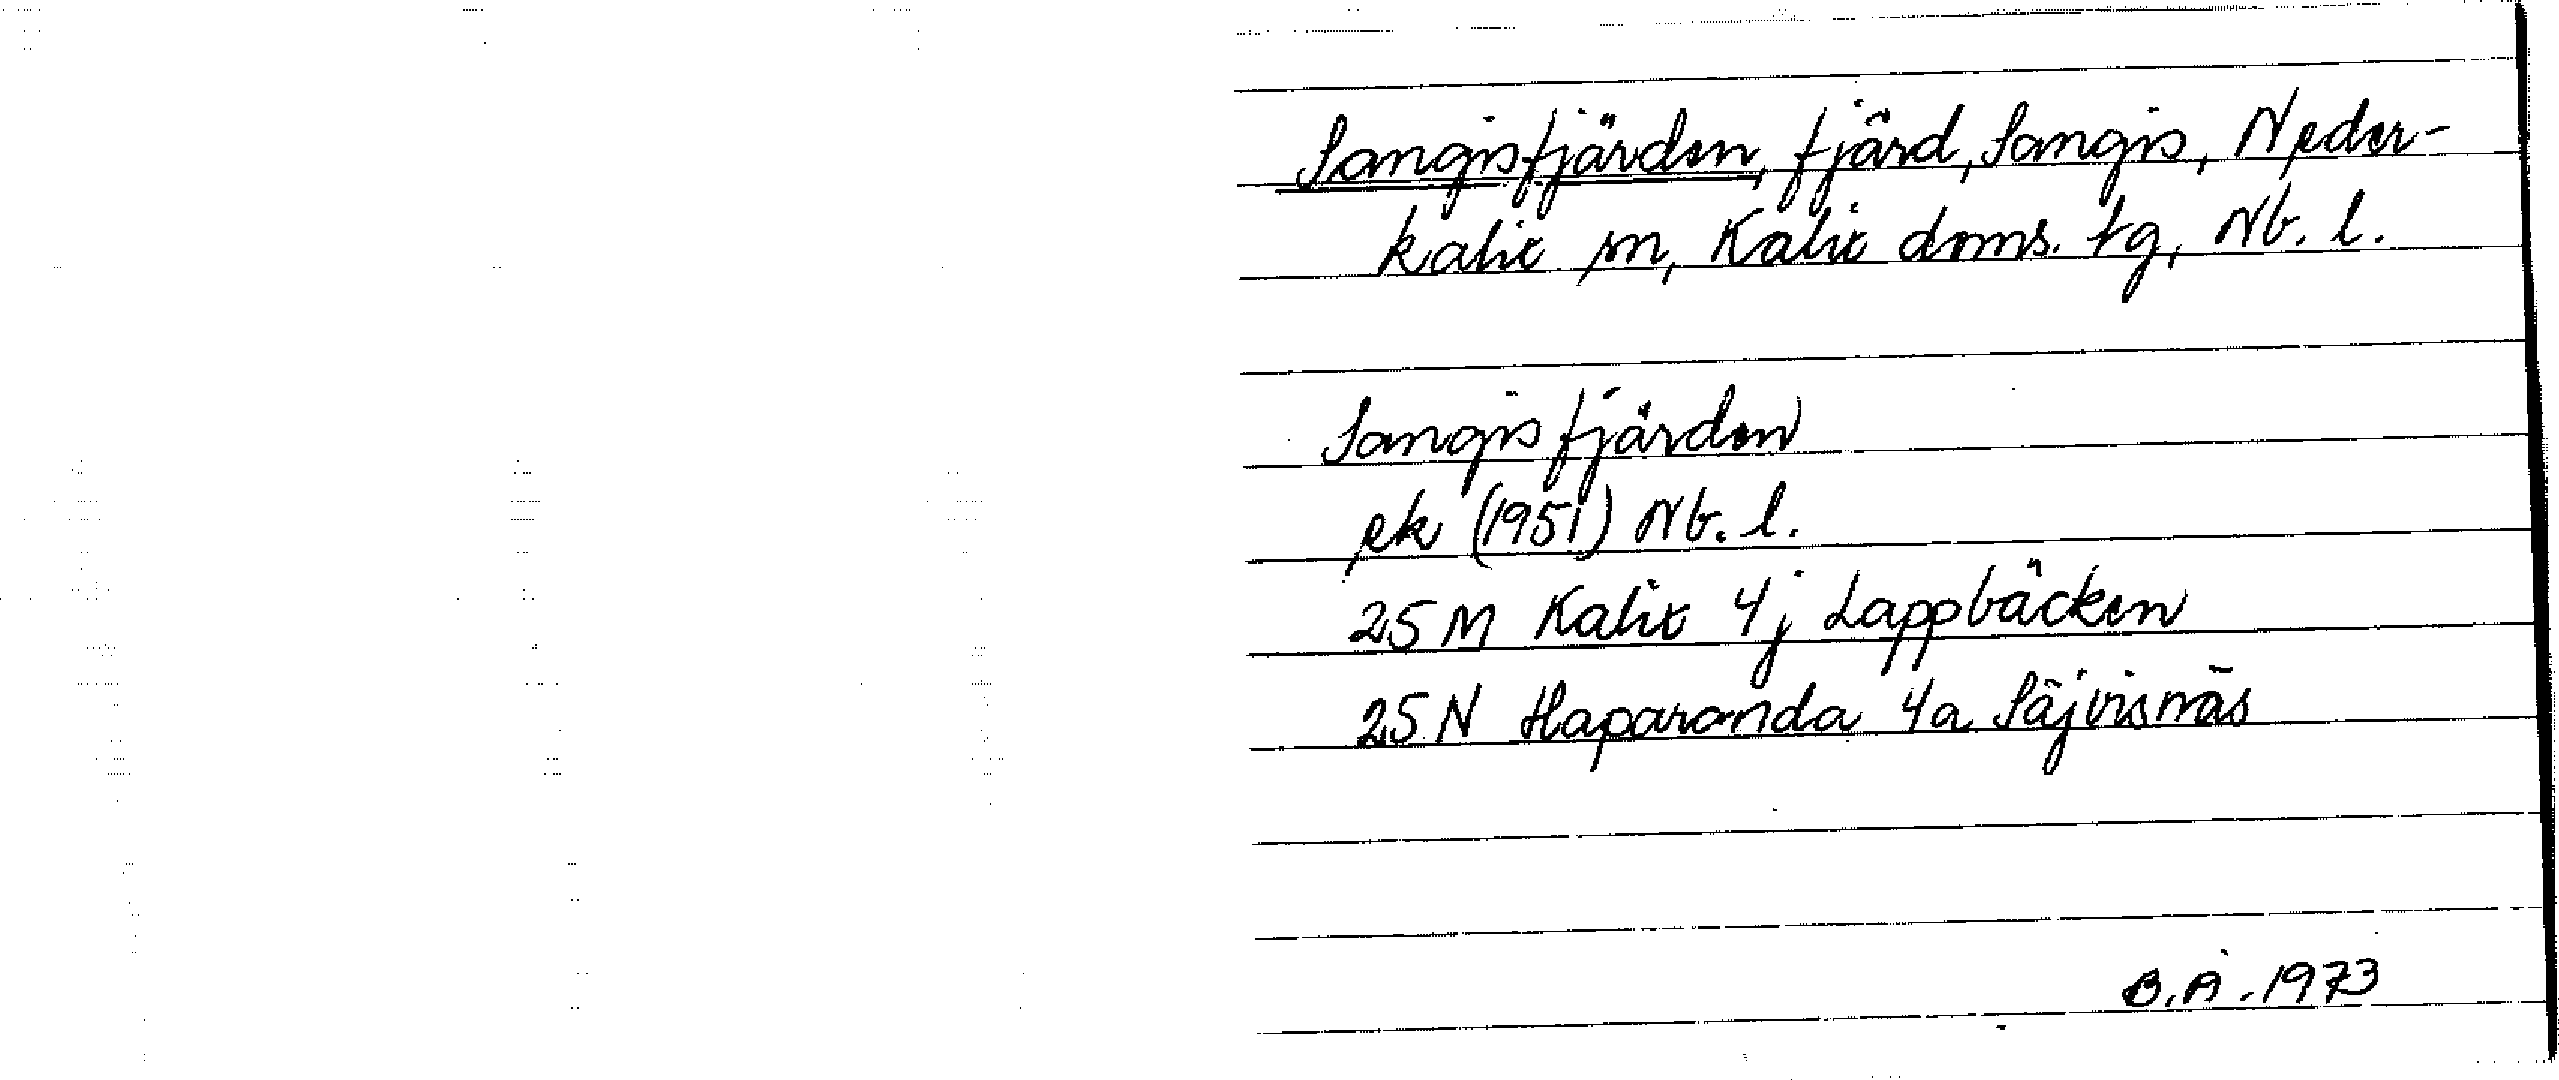 Sangisfjärden, fjärd, Sangis, Neder-
kalix sn, Kalix doms. tg, Nb. l.
Sangisfjärden
ek (1951) Nb. l.
25 M Kalix 4j Lappbäcken
25 N Haparanda 4a Säjvisnäs
B.Å. 1973